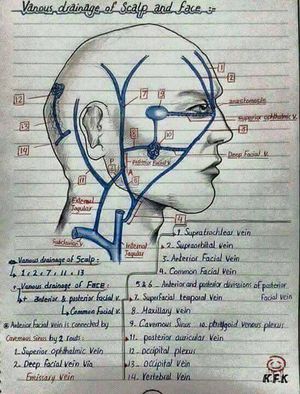 Vanous drainage of Scalp and Face :-
1
2
7
9
12
anastomosis
Superior ophthalmic V.
3
13
8
10
14
Posterior Facial V.
Deep Facial V.
P
A
11
6
External Jugular
4
Subclavian V.
Internal Jugular
* Vanous drainage of Scalp:
↳ 1 : 2 : 7 : 11 : 13
* Vanous drainage of FACE:
↳ Anterior & posterior facial V.
↳ Common Facial V.
* Anterior Facial Vein is connected by
Cavernous Sinus by 2 routs:
1. Superior ophthalmic Vein
2. Deep facial Vein Via
Emissary Vein
1 Supratrochlear vein
2. Supraorbital Vein
3. Anterior Facial Vein
4. Common Facial Vein
5 & 6. Anterior and posterior divisions of posterior Facial Vein
7. Superfacial temporal Vein
8. Maxillary Vein
9. Cavernous Sinus
10. pterygoid venous plexus
11. posterior auricular Vein
12. occipital plexus
13. occipital Vein
14. Vertebral Vein
K.F.K